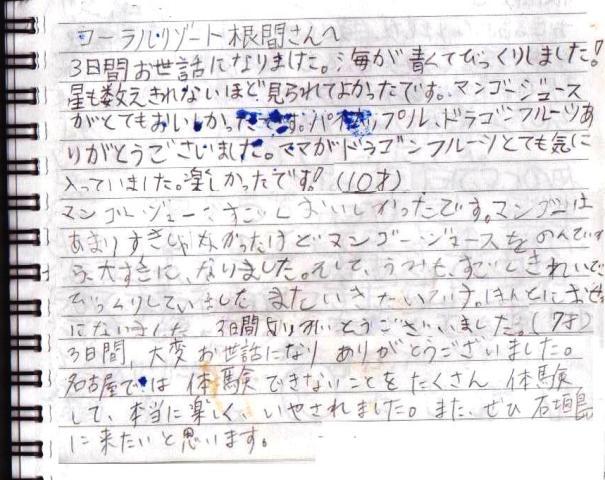 コーラルリゾート根間さんへ
3日間お世話になりました。海が青くてびっくりしました!
星も数えきれないほど見られてよかったです。マンゴージュース
がとてもおいしかったです。パイナップル、ドラゴンフルーツあ
りがとうございました。ママがドラゴンフルーツとても気に
入っていました。楽しかったです!(10才)
マンゴージュースすごくおいしかったです。マンゴーは
あまりすきじゃなかったけどマンゴージュースをのんで
大すきに、なりました。そして、うみも、すごくきれいで
びっくりしていました またいきたいです。ほんとに
3日間ありがとうございいました。(7才)
3日間、大変お世話になり ありがとうございました。
名古屋では 体験できないことをたくさん 体験
して、本当に楽しく、いやされました。また、ぜひ 石垣島
に来たいと思います。